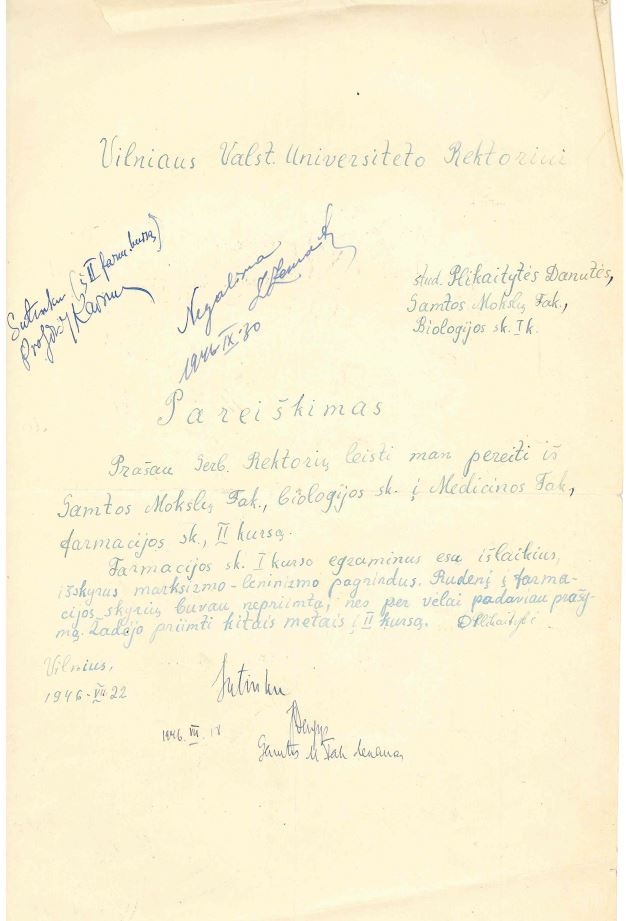 Vilniaus Valst. Universiteto Rektoriui
Sutinku (į II farm. kursą)
Negalima
1946.IX.30
stud. Plikaitytės Danutės,
Gamtos Mokslų Fak.,
Biologijos sk. I k.
Pareiškimas
Prašau Gerb. Rektorių leisti man pereiti iš
Gamtos Mokslų Fak., biologijos sk. į Medicinos Fak.,
farmacijos sk., II kursą.
Farmacijos sk. I kurso egzaminus esu išlaikius,
išskyrus marksizmo-leninizmo pagrindus. Rudenį į farma-
cijos skyrių buvau nepriimta, nes per vėlai padaviau prašy-
mą. Žadėjo priimti kitais metais į II kursą. DPlikaitytė
Vilnius,
1946-VII-22
Sutinku
1946.VIII.
Gamtos M Fak dekanas